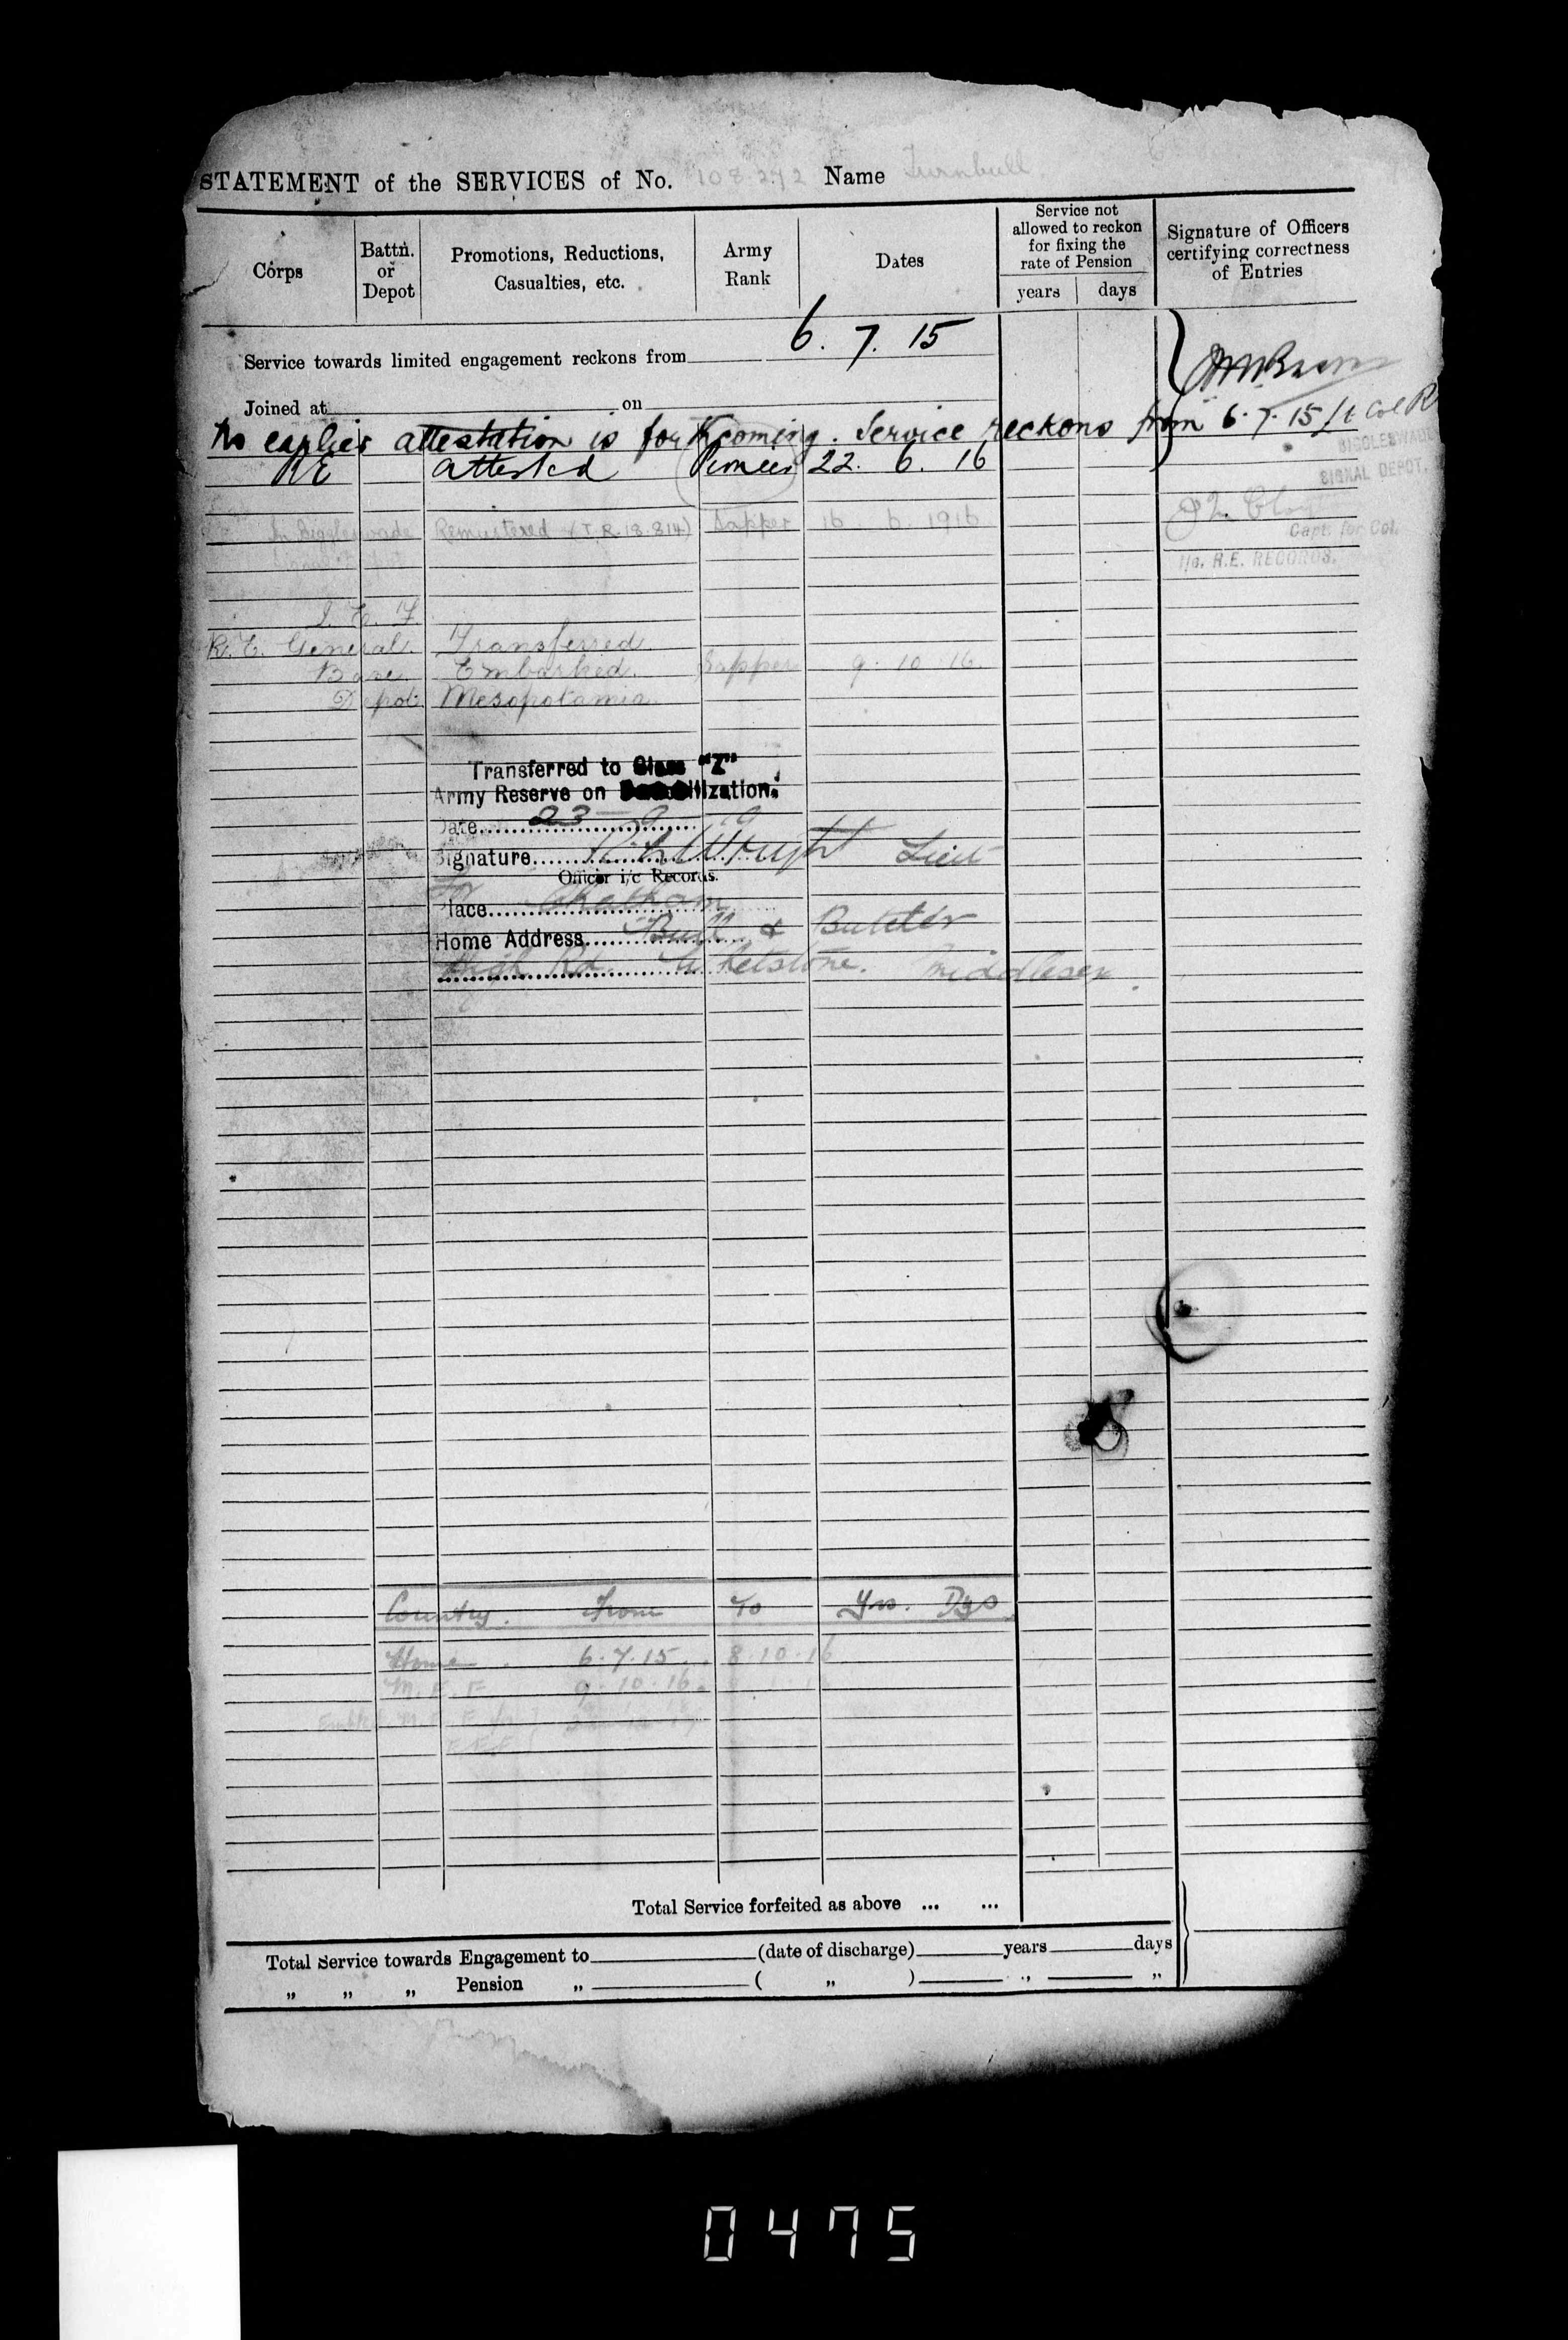 STATEMENT of the SERVICES of No. 108.272 Name Turnbull.
Corps
Battn. or Depot
Promotions, Reductions, Casualties, etc.
Army Rank
Dates
Service not allowed to reckon for fixing the rate of Pension
years days
Signature of Officers certifying correctness of Entries
Service towards limited engagement reckons from 6. 7. 15
Joined at on
No earlier attestation is forthcoming. Service reckons from 6.7.15 Lt Col R
RE attested Pioneer 22. 6. 16
BIGGLESWADE
SIGNAL DEPOT.
Biggleswade Remustered (T.R.18.814) Sapper 16 6 1916
Capt. for Col.
i/c. R.E. RECORDS.
I. E. F.
R.E. General Transferred
Base Embarked. Sapper 9. 10 16.
Depot Mesopotamia
Transferred to Class "Z"
Army Reserve on Demobilization.
Date 23 9 19
Signature Wright Lieut
Officer i/c Records.
Place Chatham
Home Address Bull & Butcher
High Rd. Whetstone. Middlesex
Country. From To Yrs. Dys.
Home 6.7.15 8.10.16
M. E. F 9.10.16
Total Service forfeited as above ... ...
Total Service towards Engagement to (date of discharge) years days
„ „ „ Pension „ ( „ ) „ „
0475